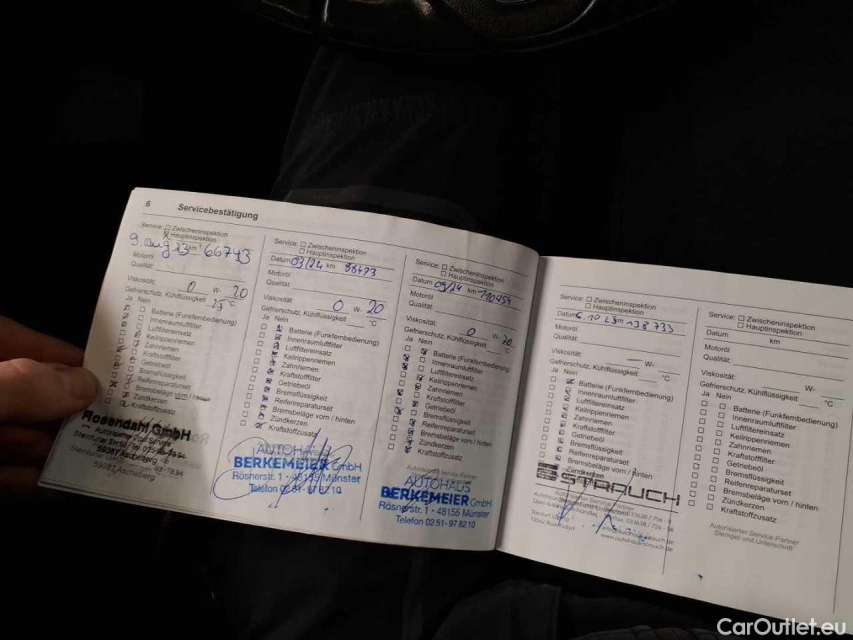 6 Servicebestätigung
Service: Zwischeninspektion
Hauptinspektion
9. Aug 23 km 66743
Motoröl
Qualität
Viskosität: 0 W- 20
Gefrierschutz, Kühlflüssigkeit -25 °C
Ja Nein
Batterie (Funkfernbedienung)
Innenraumluftfilter
Luftfiltereinsatz
Keilrippenriemen
Zahnriemen
Kraftstofffilter
Getriebeöl
Bremsflüssigkeit
Reifenreparaturset
Bremsbeläge vorn / hinten
Zündkerzen
Kraftstoffzusatz
Rosendahl GmbH
59387 Ascheberg
Service: Zwischeninspektion
Hauptinspektion
Datum 03/24 km
Motoröl
Qualität:
Viskosität: 0 W- 20
Gefrierschutz, Kühlflüssigkeit °C
Ja Nein
Batterie (Funkfernbedienung)
Innenraumluftfilter
Luftfiltereinsatz
Keilrippenriemen
Zahnriemen
Kraftstofffilter
Getriebeöl
Bremsflüssigkeit
Reifenreparaturset
Bremsbeläge vorn / hinten
Zündkerzen
Kraftstoffzusatz
AUTOHAUS
BERKEMEIER GmbH
Rösnerstr. 1 · 48155 Münster
Telefon 02 51 - 97 82 10
Service: Zwischeninspektion
Hauptinspektion
Datum 09/24 km 110454
Motoröl
Qualität:
Viskosität: 0 W- 20
Gefrierschutz, Kühlflüssigkeit °C
Ja Nein
Batterie (Funkfernbedienung)
Innenraumluftfilter
Luftfiltereinsatz
Keilrippenriemen
Zahnriemen
Kraftstofffilter
Getriebeöl
Bremsflüssigkeit
Reifenreparaturset
Bremsbeläge vorn / hinten
Zündkerzen
Kraftstoffzusatz
Autorisierter Service Partner
AUTOHAUS
BERKEMEIER GmbH
Rösnerstr. 1 · 48155 Münster
Telefon 02 51 - 97 82 10
Service: Zwischeninspektion
Hauptinspektion
Datum 6.10.25 km 138 733
Motoröl
Qualität:
Viskosität: — W-
Gefrierschutz, Kühlflüssigkeit °C
Ja Nein
Batterie (Funkfernbedienung)
Innenraumluftfilter
Luftfiltereinsatz
Keilrippenriemen
Zahnriemen
Kraftstofffilter
Getriebeöl
Bremsflüssigkeit
Reifenreparaturset
Bremsbeläge vorn / hinten
Zündkerzen
STRAUCH
Autorisierter Service Partner
Service: Zwischeninspektion
Hauptinspektion
Datum km
Motoröl
Qualität:
Viskosität: W-
Gefrierschutz, Kühlflüssigkeit °C
Ja Nein
Batterie (Funkfernbedienung)
Innenraumluftfilter
Luftfiltereinsatz
Keilrippenriemen
Zahnriemen
Kraftstofffilter
Getriebeöl
Bremsflüssigkeit
Reifenreparaturset
Bremsbeläge vorn / hinten
Zündkerzen
Kraftstoffzusatz
Autorisierter Service Partner
Stempel und Unterschrift
CarOutlet.eu